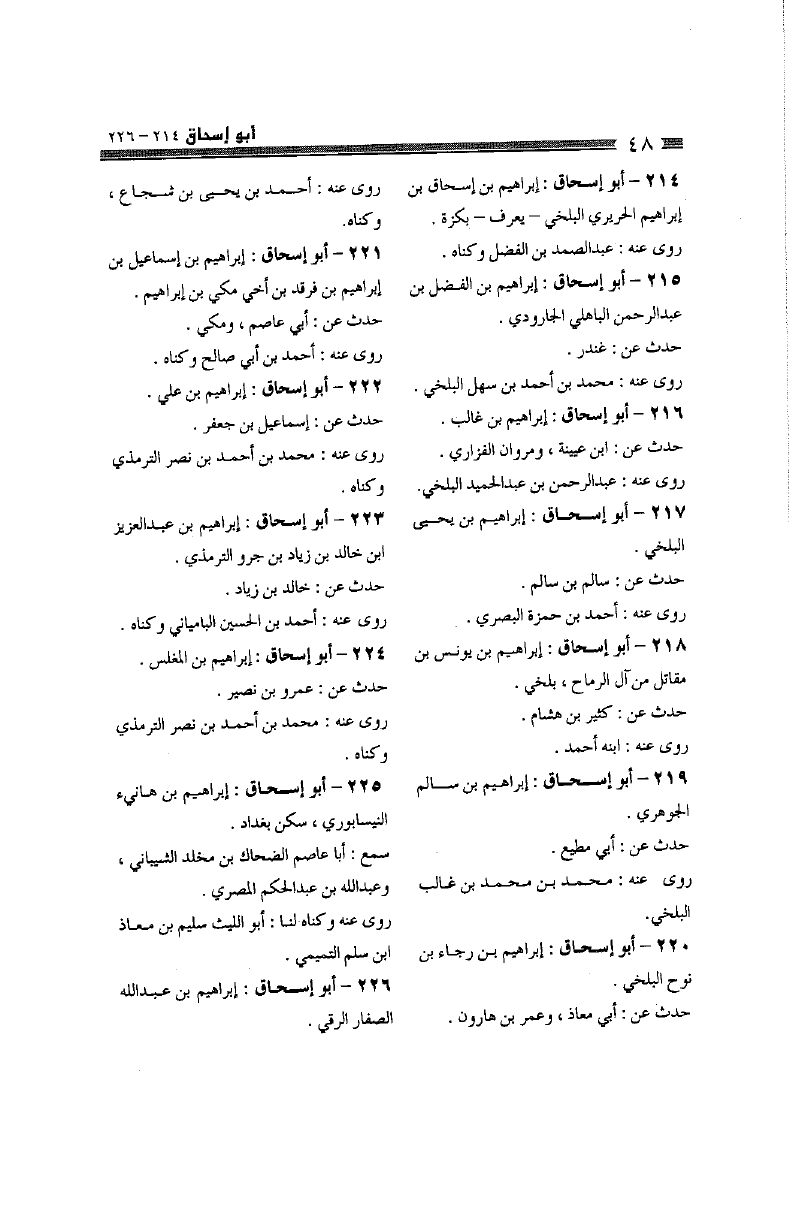 ٤٨
أبو إسحاق ٢١٤ – ٢٢٦
٢١٤ – أبو إسحاق : إبراهيم بن إسحاق بن
إبراهيم الحريري البلخي – يعرف – بكزة .
روى عنه : عبدالصمد بن الفضل وكناه .
٢١٥ – أبو إسحاق : إبراهيم بن الفضل بن
عبدالرحمن الباهلي الجارودي .
حدث عن : غندر .
روى عنه : محمد بن أحمد بن سهل البلخي .
٢١٦ – أبو إسحاق : إبراهيم بن غالب .
حدث عن : ابن عيينة ، ومروان الفزاري .
روى عنه : عبدالرحمن بن عبدالحميد البلخي.
٢١٧ – أبو إسحاق : إبراهيم بن يحيى
البلخي .
حدث عن : سالم بن سالم .
روى عنه : أحمد بن حمزة البصري .
٢١٨ – أبو إسحاق : إبراهيم بن يونس بن
مقاتل من آل الرماح ، بلخي .
حدث عن : كثير بن هشام .
روى عنه : ابنه أحمد .
٢١٩ – أبو إسحاق : إبراهيم بن سالم
الجوهري .
حدث عن : أبي مطيع .
روى عنه : محمد بن محمد بن غالب
البلخي.
٢٢٠ – أبو إسحاق : إبراهيم بن رجاء بن
نوح البلخي .
حدث عن : أبي معاذ ، وعمر بن هارون .
روى عنه : أحمد بن يحيى بن شجاع ،
وكناه.
٢٢١ – أبو إسحاق : إبراهيم بن إسماعيل بن
إبراهيم بن فرقد بن أخي مكي بن إبراهيم .
حدث عن : أبي عاصم ، ومكي .
روى عنه : أحمد بن أبي صالح وكناه .
٢٢٢ – أبو إسحاق : إبراهيم بن علي .
حدث عن : إسماعيل بن جعفر .
روى عنه : محمد بن أحمد بن نصر الترمذي
وكناه .
٢٢٣ – أبو إسحاق : إبراهيم بن عبدالعزيز
ابن خالد بن زياد بن جرو الترمذي .
حدث عن : خالد بن زياد .
روى عنه : أحمد بن الحسين الباميانى وكناه .
٢٢٤ – أبو إسحاق : إبراهيم بن المغلس .
حدث عن : عمرو بن نصير .
روى عنه : محمد بن أحمد بن نصر الترمذي
وكناه .
٢٢٥ – أبو إسحاق : إبراهيم بن هانيء
النيسابوري ، سكن بغداد .
سمع : أبا عاصم الضحاك بن مخلد الشيباني ،
وعبدالله بن عبدالحكم المصري .
روى عنه وكناه لنا : أبو الليث سليم بن معاذ
ابن سلم التميمي .
٢٢٦ – أبو إسحاق : إبراهيم بن عبدالله
الصفار الرقي .